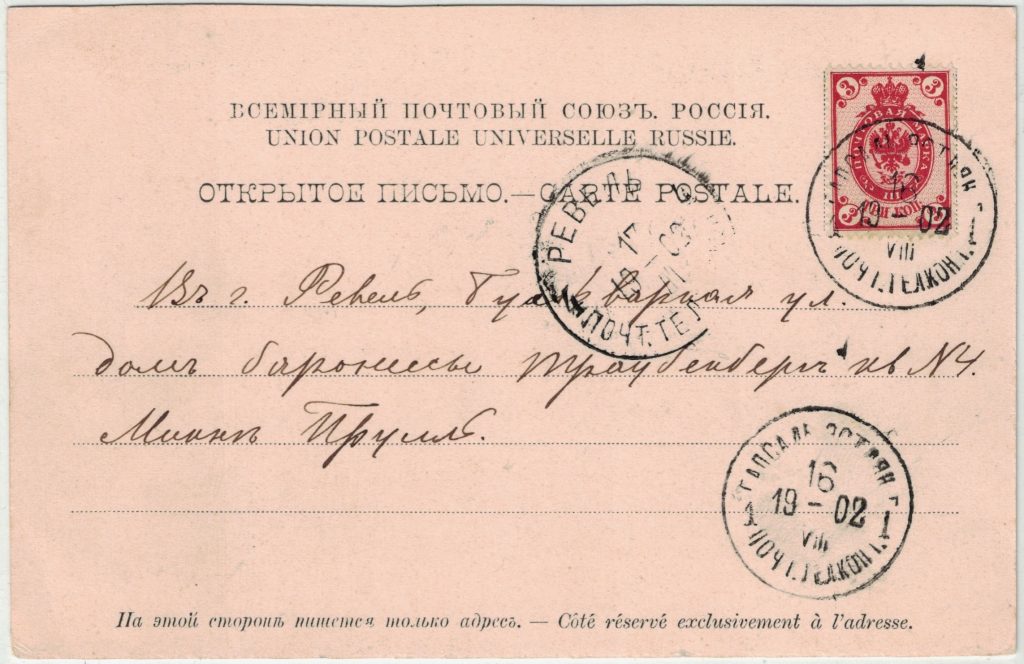 ВСЕМІРНЫЙ ПОЧТОВЫЙ СОЮЗЪ. РОССІЯ.
UNION POSTALE UNIVERSELLE RUSSIE.
ОТКРЫТОЕ ПИСЬМО.—CARTE POSTALE.
3 3
ПОЧТОВАЯ МАРКА
ТРИ КОП.
3
19 - 02
VIII
ПОЧТ.ТЕЛ.КОНТ.
РЕВЕЛЬ
17
ПОЧТ.ТЕЛ
Въ г. Ревель, ул.
домъ баронессы Траубенбергъ кв N4.
Прулль.
ГАПСАЛЬ ЭСТЛЯН. Г.
16
19 - 02
VIII
1 ПОЧТ.ТЕЛ.КОНТ. 1
На этой сторонѣ пишется только адресъ. — Côté réservé exclusivement à l'adresse.